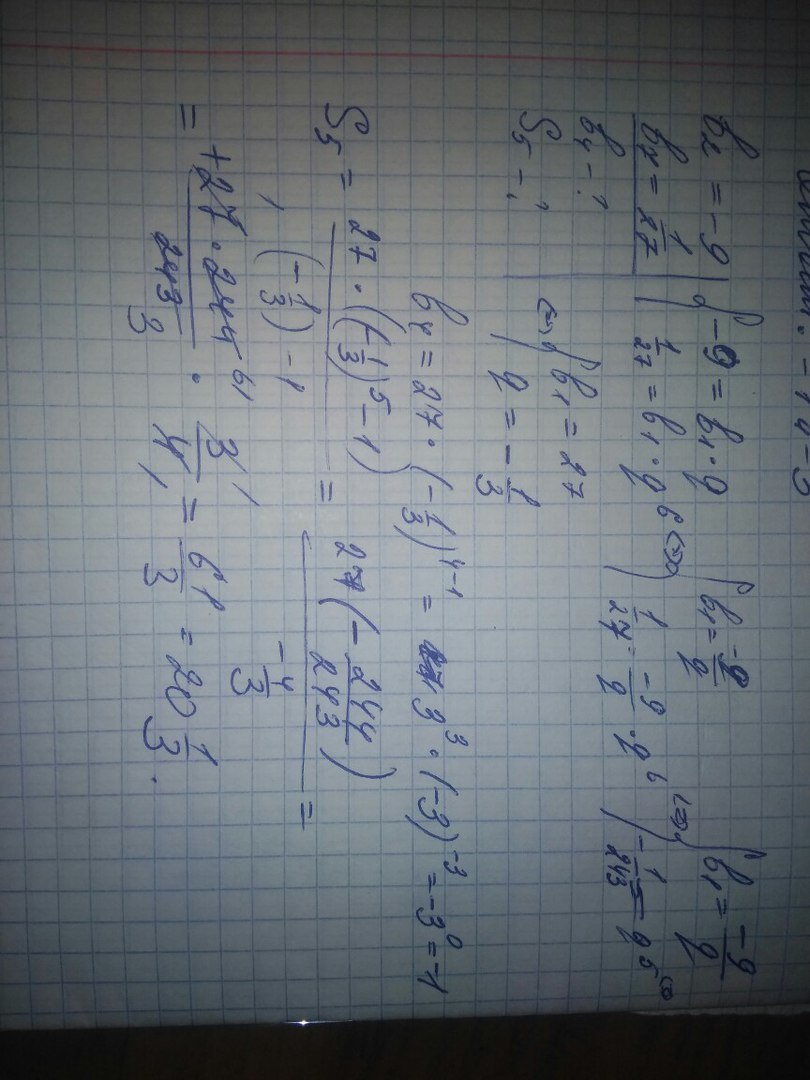 b₂ = -9
b₇ = 1/27
b₄ - ?
S₅ - ?
{ -9 = b₁·q
1/27 = b₁·q⁶ <=>
{ b₁ = -9/q
1/27 = -9/q · q⁶ <=>
{ b₁ = -9/q
-1/243 = q⁵ <=>
<=> { b₁ = 27
q = -1/3
b₄ = 27·(-1/3)⁴⁻¹ = 3³·(-3)⁻³ = -3⁰ = -1
S₅ = 27·((-1/3)⁵ - 1) / ((-1/3) - 1) = 27(-244/243) / (-4/3) =
= +27·244 61 / 243 9 · 3/4 = 61/3 = 20 1/3.